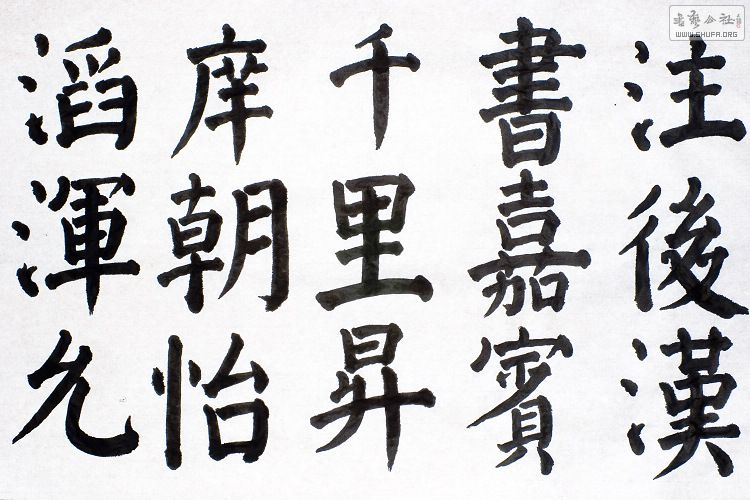 注後漢
書嘉賓
千里昇
庠朝怡
滔渾允
书藝公社
WWW.SHUFA.ORG